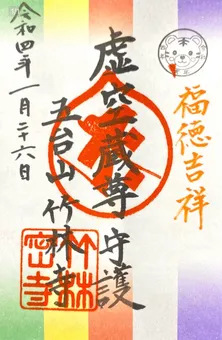 福徳吉祥
虚空蔵尊守護
五台山竹林寺
令和四年一月二十六日
竹林
密寺